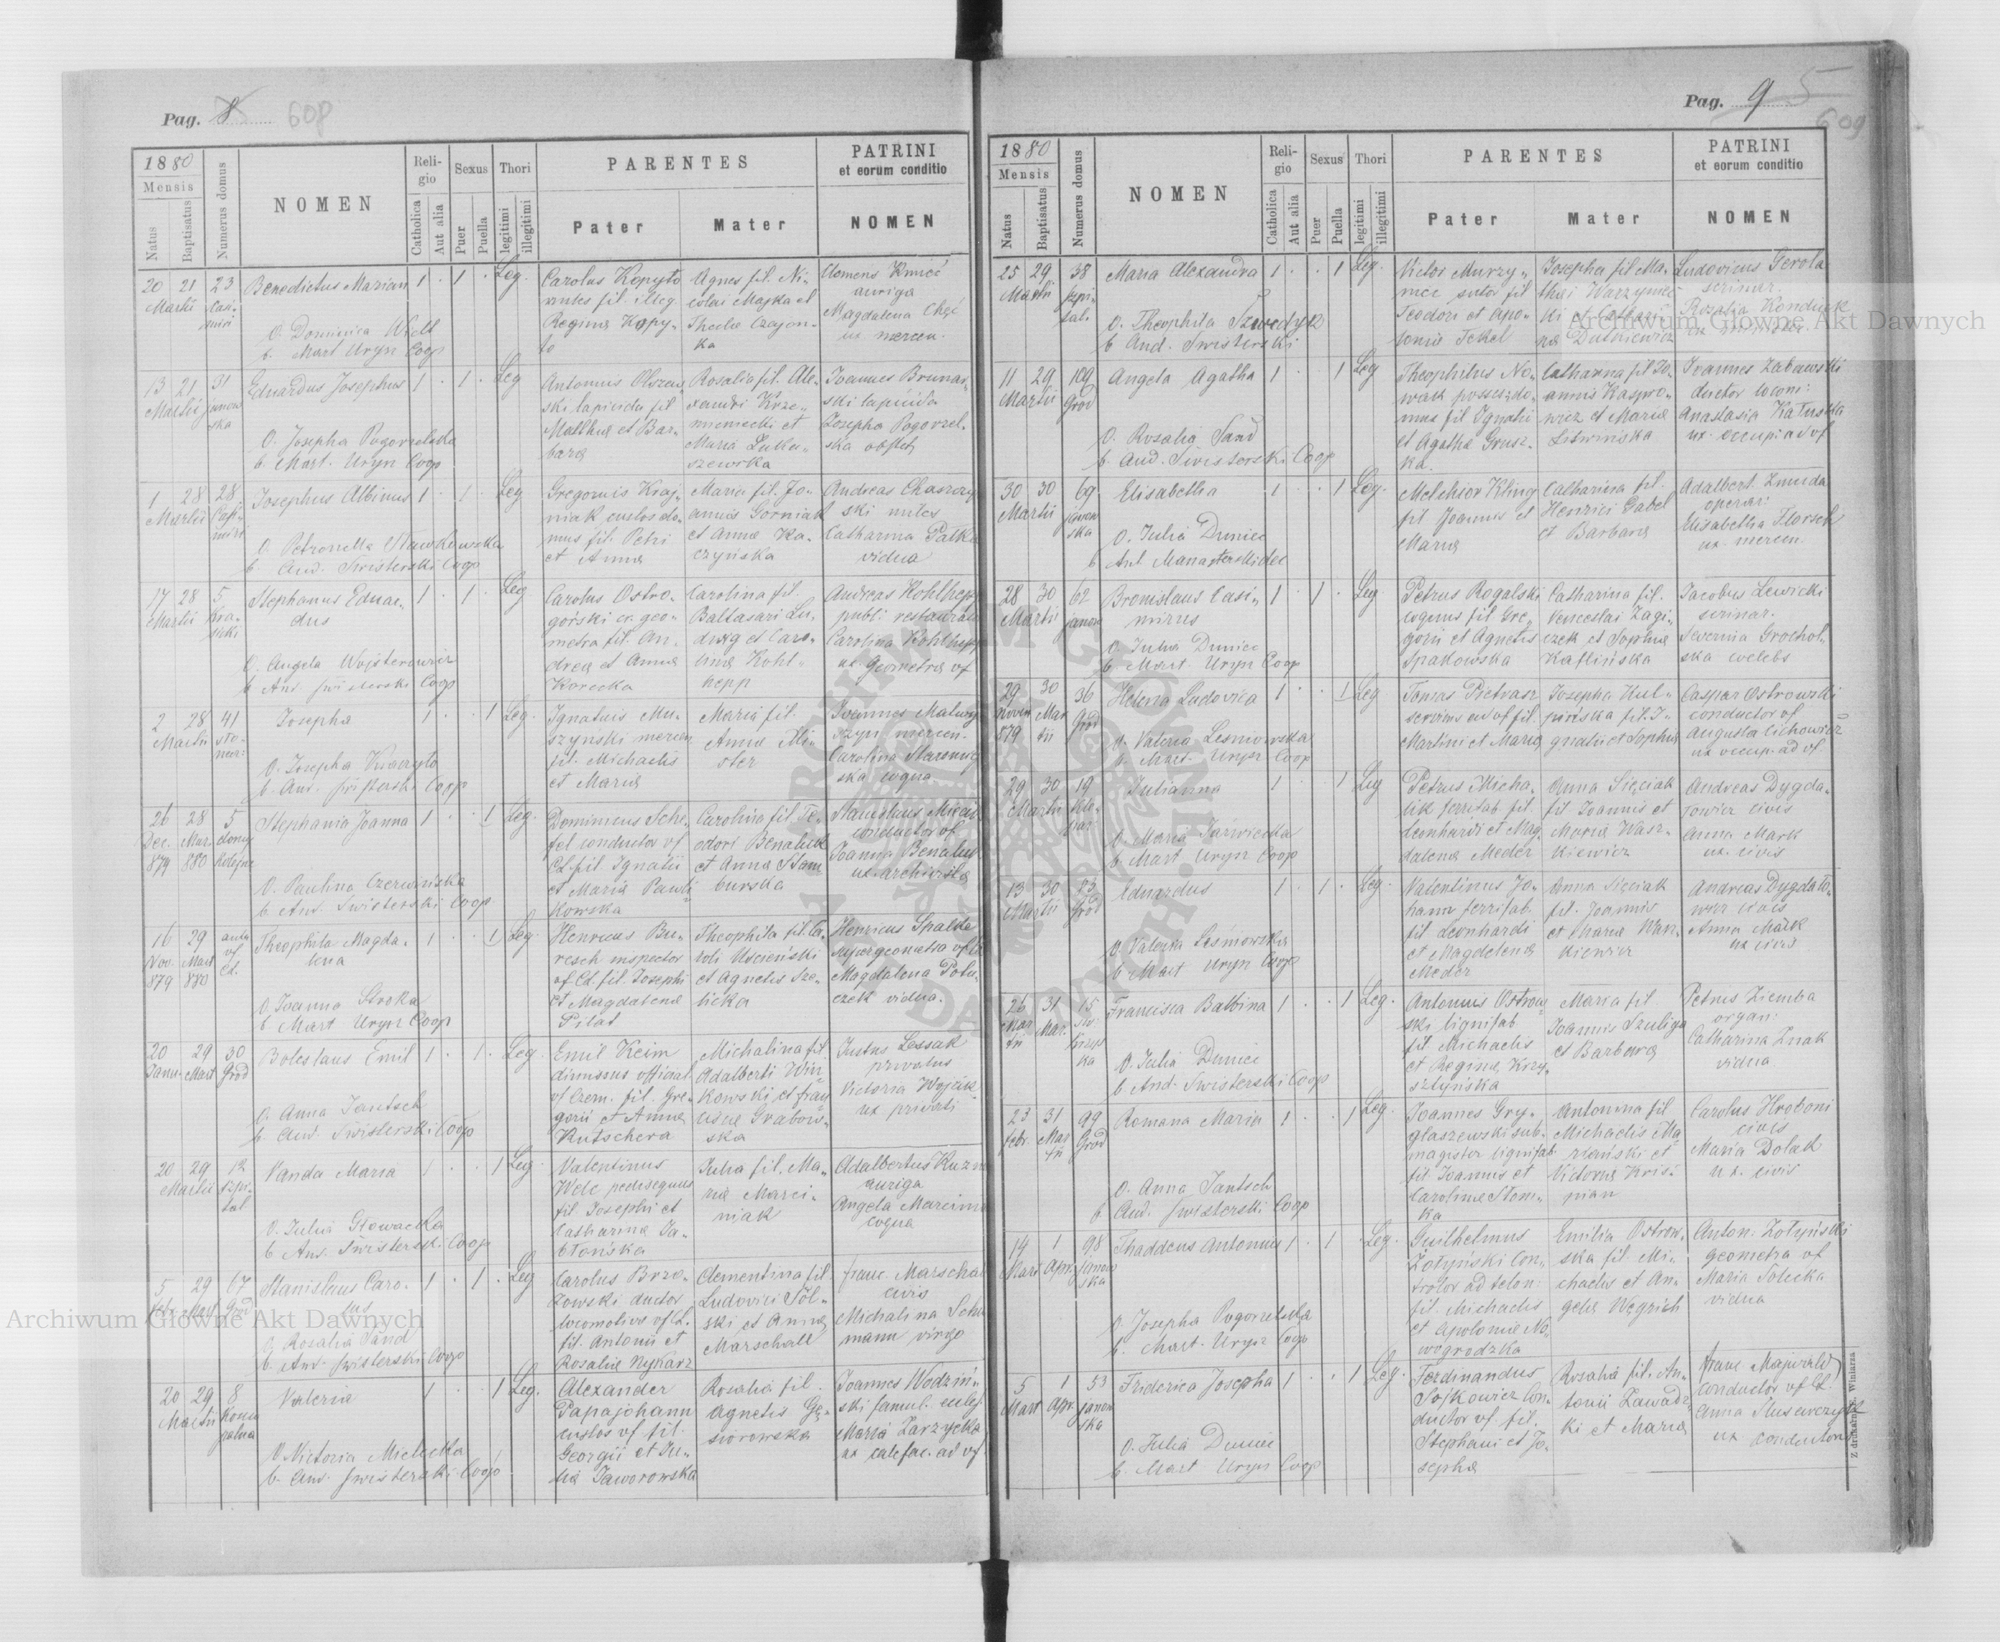 Pag. 8 608
1880
Mensis
Natus
Baptisatus
Numerus domus
NOMEN
Religio
Catholica
Aut alia
Sexus
Puer
Puella
Thori
legitimi
illegitimi
PARENTES
Pater
Mater
PATRINI
et eorum conditio
NOMEN
20 21 23
Martii
Benedictus Marian 1 . 1 . Leg.
O. Dominica Welt
b. Mart Uryn Coop
Carolus Kopyto
miles fil. illeg.
Regina Kopy-
to
Agnes fil. Ni-
colai Majka et
Thecla Czajon-
ka
Clemens Kmieć
auriga
Magdalena
ux mercen.
13 21 31
Martii
Eduardus Josephus 1 . 1 . Leg
O. Josepha Pogorzelska
b. Mart. Uryn Coop
Antonius Olszew-
ski lapicida fil
Matthei et Bar-
bara
Rosalia fil. Ale-
xandri Krze-
mieniecki et
Maria Luka-
szewska
Joannes Brunar-
ski lapicida
Josepha Pogorzel-
ska obstet.
1 28 28
Martii
Josephus Albinus 1 . 1 . Leg
O. Petronella Sławkowska
b. And. Swisterski Coop
Gregorius Kraj-
niak custos do-
mus fil. Petri
et Anna
Maria fil. Jo-
annis Gorniak
et Anna Ka-
czyńska
Andreas
ski miles
Catharina Patka
vidua
17 28 5
Martii
Stephanus Eduar-
dus
1 . 1 . Leg
O. Angela Wojterowicz
b. And. Swisterski Coop
Carolus Ostro-
górski cr. geo-
metra fil. An-
drea et Anna
Korecka
Carolina fil.
Baltasari Lu-
dwig et Caro-
lina Kohl-
hepp
Andreas Kohlhepp
publ. restaurator
Carolina Kohlhepp
ux Geometra of
2 28 41
Martii
Josepha 1 . . 1 Leg.
O. Josepha Kwaczyło
b. And. Swisterski Coop
Ignatius Mu-
szynski mercen
fil. Michaelis
et Maria
Maria fil.
Anna
ster
Joannes
mercen.
Carolina
ska coqua
26 28 5
Dec. Mar.
879 880
Stephania Joanna 1 . . 1 Leg.
O. Paulina Czerwińska
b. And. Swisterski Coop
Dominicus Sche-
fel conductor of
Cd. fil Ignatii
et Maria Pawli-
kowska
Carolina fil. Te-
odori Benaluk
et Anna Stam-
burska
Stanislaus
conductor of
Joanna Benaluk
ux. archivista
16 29
Nov. Mart
879 880
Theophila Magda-
lena
1 . . 1 Leg.
O. Joanna Stroka
b Mart Uryn Coop
Henricus Bu-
resch inspector
of Cd. fil. Josephi
et Magdalena
Pilat
Theophila fil. Ca-
roli Uścieński
et Agnetis Sze-
licka
Henricus Spalke
Magdalena Potu-
czek vidua.
20 29 30
Janu. Mart Grod
Boleslaus Emil 1 . 1 . Leg.
O. Anna Jantsch
b. And. Swisterski Coop
Emil Keim
dimissus official
of Czern. fil. Gre-
gorii et Anna
Kutschera
Michalina fil.
Adalberti Win-
kowski et Fran-
cisca Grabow-
ska
Justus Lessak
privatus
Victoria Wojcik
ux privati
20 29 12
Martii Szpi-
tal
Vanda Maria 1 . . 1 Leg.
O. Julia Głowacka
b And. Swisterski Coop
Valentinus
Welc pedisequus
fil. Josephi et
Catharina Ja-
błońska
Julia fil. Ma-
ria Marci-
niak
Adalbertus
auriga
Angela
coqua
5 29 67
Febr. Mart Grod
Stanislaus Caro-
lus
1 . 1 . Leg
O. Rosalia Sand
b. And. Swisterski Coop
Carolus Brzo-
zowski ductor
locomotivo of L.
fil. Antonii et
Rosalia Nykarz
Clementina fil.
Ludovici Söl-
ski et Anna
Marschall
Franc Marschall
civis
Michalina Schu
mann virgo
20 29 8
Martii
Valeria 1 . . 1 Leg.
O. Victoria Michalka
b. And. Swisterski Coop
Alexander
Papajohann
custos of fil.
Georgii et Ju-
lia Jaworowska
Rosalia fil.
Agnetis Gę-
siorowska
Joannes Wodziń-
ski famul. eccles.
Maria Zarzycka
ux calefac. ad of.
Pag. 9 5
609
1880
Mensis
Natus
Baptisatus
Numerus domus
NOMEN
Religio
Catholica
Aut alia
Sexus
Puer
Puella
Thori
legitimi
illegitimi
PARENTES
Pater
Mater
PATRINI
et eorum conditio
NOMEN
25 29 38
Martii Szpi-
tal.
Maria Alexandra 1 . . 1 Leg.
O. Theophila Szwedyk
b And. Swisterski
Victor Murzy-
niec sutor fil
Teodori et Apo-
lonia Tekel
Josepha fil Ma-
thei Warzyniec-
ki et Cathari-
na Dutkiewicz
Ludovicus Gerola
scrinar.
Rosalia Konduck
11 29 109
Martii Grod
Angela Agatha 1 . . 1 Leg
O. Rosalia Sand
b. And. Swisterski Coop
Theophilus No-
wak possess. do-
mus fil Ignatii
et Agatha Grusz-
ka.
Catharina fil Jo-
annis Kaspro-
wicz et Maria
Liswińska
Joannes Zabawski
ductor locom:
Anastasia Katuska
ux. occupi ad of
30 30 69
Martii
Elisabetha 1 . . 1 Leg.
O. Julia Duniec
Ant Manasterskidec
Melchior Kling
fil Joannis et
Maria
Catharina fil.
Henrici Gabel
et Barbara
Adalbert. Zmuda
operar:
Elisabetha Florsch
ux. mercen.
28 30 62
Martii Janow
Bronislaus Casi-
mirus
1 . 1 . Leg
O Julia Duniec
b. Mart. Uryn Coop
Petrus Rogalski
coquus fil Gre-
gorii et Agnetis
Spakowska
Catharina fil.
Venceslai Zagi-
czek et Sophia
Kaflińska
Jacobus Lewicki
scrinar.
Severnia Grochol-
ska coelebs
29 30 36
Novem Mar- Grod
879 tii
Helena Ludovica 1 . . 1 Leg
O. Valeria Lesniowska
b. Mart. Uryn Coop
Tomas Pietrasz
servivus ad of fil.
Martini et Maria
Josepha Kul-
pińska fil. I-
gnatii et Sophia
Caspar Ostrowski
conductor of
Augusta Cichowicz
ux occup. ad of
29 30 19
Martii
Julianna 1 . . 1 Leg
O Maria Jarwicska
b Mart. Uryn Coop
Petrus Micha-
lik ferrifab. fil.
Leonhardi et Mag-
dalena Meder
Anna Sięciak
fil Joannis et
Maria Wasz-
kiewicz
Andreas Dygda-
towicz civis
Anna Mark
ux. civis
13 30 23
Martii Grod
Eduardus 1 . 1 . Leg
O Valeria Leśniowska
b Mart Uryn Coop
Valentinus Jo-
hann ferrifab.
fil Leonhardi
et Magdalena
Meder
Anna Sięciak
fil. Joannis
et Maria Wasz-
kiewicz
Andreas Dygdato-
wicz civis
Anna Mark
ux civis
26 31 15
Mar- Mar.
tii
Francisca Balbina 1 . . 1 Leg.
O Julia Duniec
b And. Swisterski Coop
Antonius Ostrow-
ski lignifab.
fil Michaelis
et Regina Krzy-
sztyńska
Maria fil
Joannis Szuliga
et Barbara
Petrus Ziemba
organ:
Catharina Znak
vidua
23 31 99
Febr. Mar- Grod
tii
Romana Maria 1 . . 1 Leg.
O. Anna Jantsch
b And. Swisterski Coop
Joannes Gry-
glaszewski sub-
magister lignifab
fil. Joannis et
Carolina Słom-
ka
Antonina fil
Michaelis Ma-
riański et
Victoria Krisz-
pian
Carolus Hroboni
civis
Maria Dolak
ux. civis
14 1 98
Mart Apr. Janow-
ska
Thaddeus Antonius 1 . 1 . Leg.
O. Josepha Pogorzelska
b. Mart. Uryn Coop
Guilhelmus
Żołyński con-
trolor ad telon.
fil. Michaelis
et Apolonia No-
wogrodzka
Emilia Ostrow-
ska fil. Mi-
chaelis et An-
gela Węgrich
Anton. Żołyński
geometra of
Maria Solecka
vidua
5 1 53
Mart Apr. Janow-
ska
Friderica Josepha 1 . . 1 Leg.
O. Julia Duniec
b. Mart Uryn Coop
Ferdinandus
Sojkowicz con-
ductor of fil.
Stephani et Jo-
sepha
Rosalia fil. An-
tonii Zawadz-
ki et Maria
Franc Majwald
conductor of Cd.
Anna
ux conductoris
Z drukarni E. Winiarza
Archiwum Główne Akt Dawnych
Archiwum Główne Akt Dawnych
ARCHIWUM GŁÓWNE AKT DAWNYCH